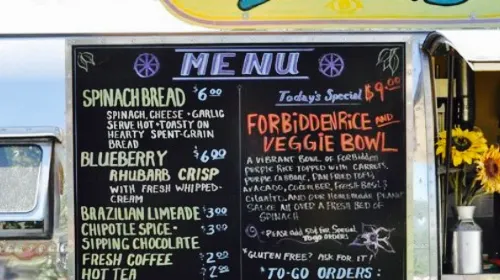 MENU
SPINACH BREAD $6.00
SPINACH, CHEESE + GARLIC
SERVE HOT + TOASTY ON
HEARTY SPENT-GRAIN
BREAD
BLUEBERRY $6.00
RHUBARB CRISP
WITH FRESH WHIPPED-
CREAM
BRAZILIAN LIMEADE $3.00
CHIPOTLE SPICE- $3.00
SIPPING CHOCOLATE
FRESH COFFEE $2.00
HOT TEA $2
Today's Special $9.00
FORBIDDEN RICE AND
VEGGIE BOWL
A VIBRANT BOWL OF FORBIDDEN
PURPLE RICE TOPPED WITH CARROTS,
PURPLE CABBAGE, PAN FRIED TOFU,
AVOCADO, CUCUMBER, FRESH BASIL &
CILANTRO, AND OUR HOMEMADE PEANUT
SAUCE ALL OVER A FRESH BED OF
SPINACH
Please ADD 50¢ for Special
To-go orders
*GLUTEN FREE? ASK FOR IT!
*TO-GO ORDERS: